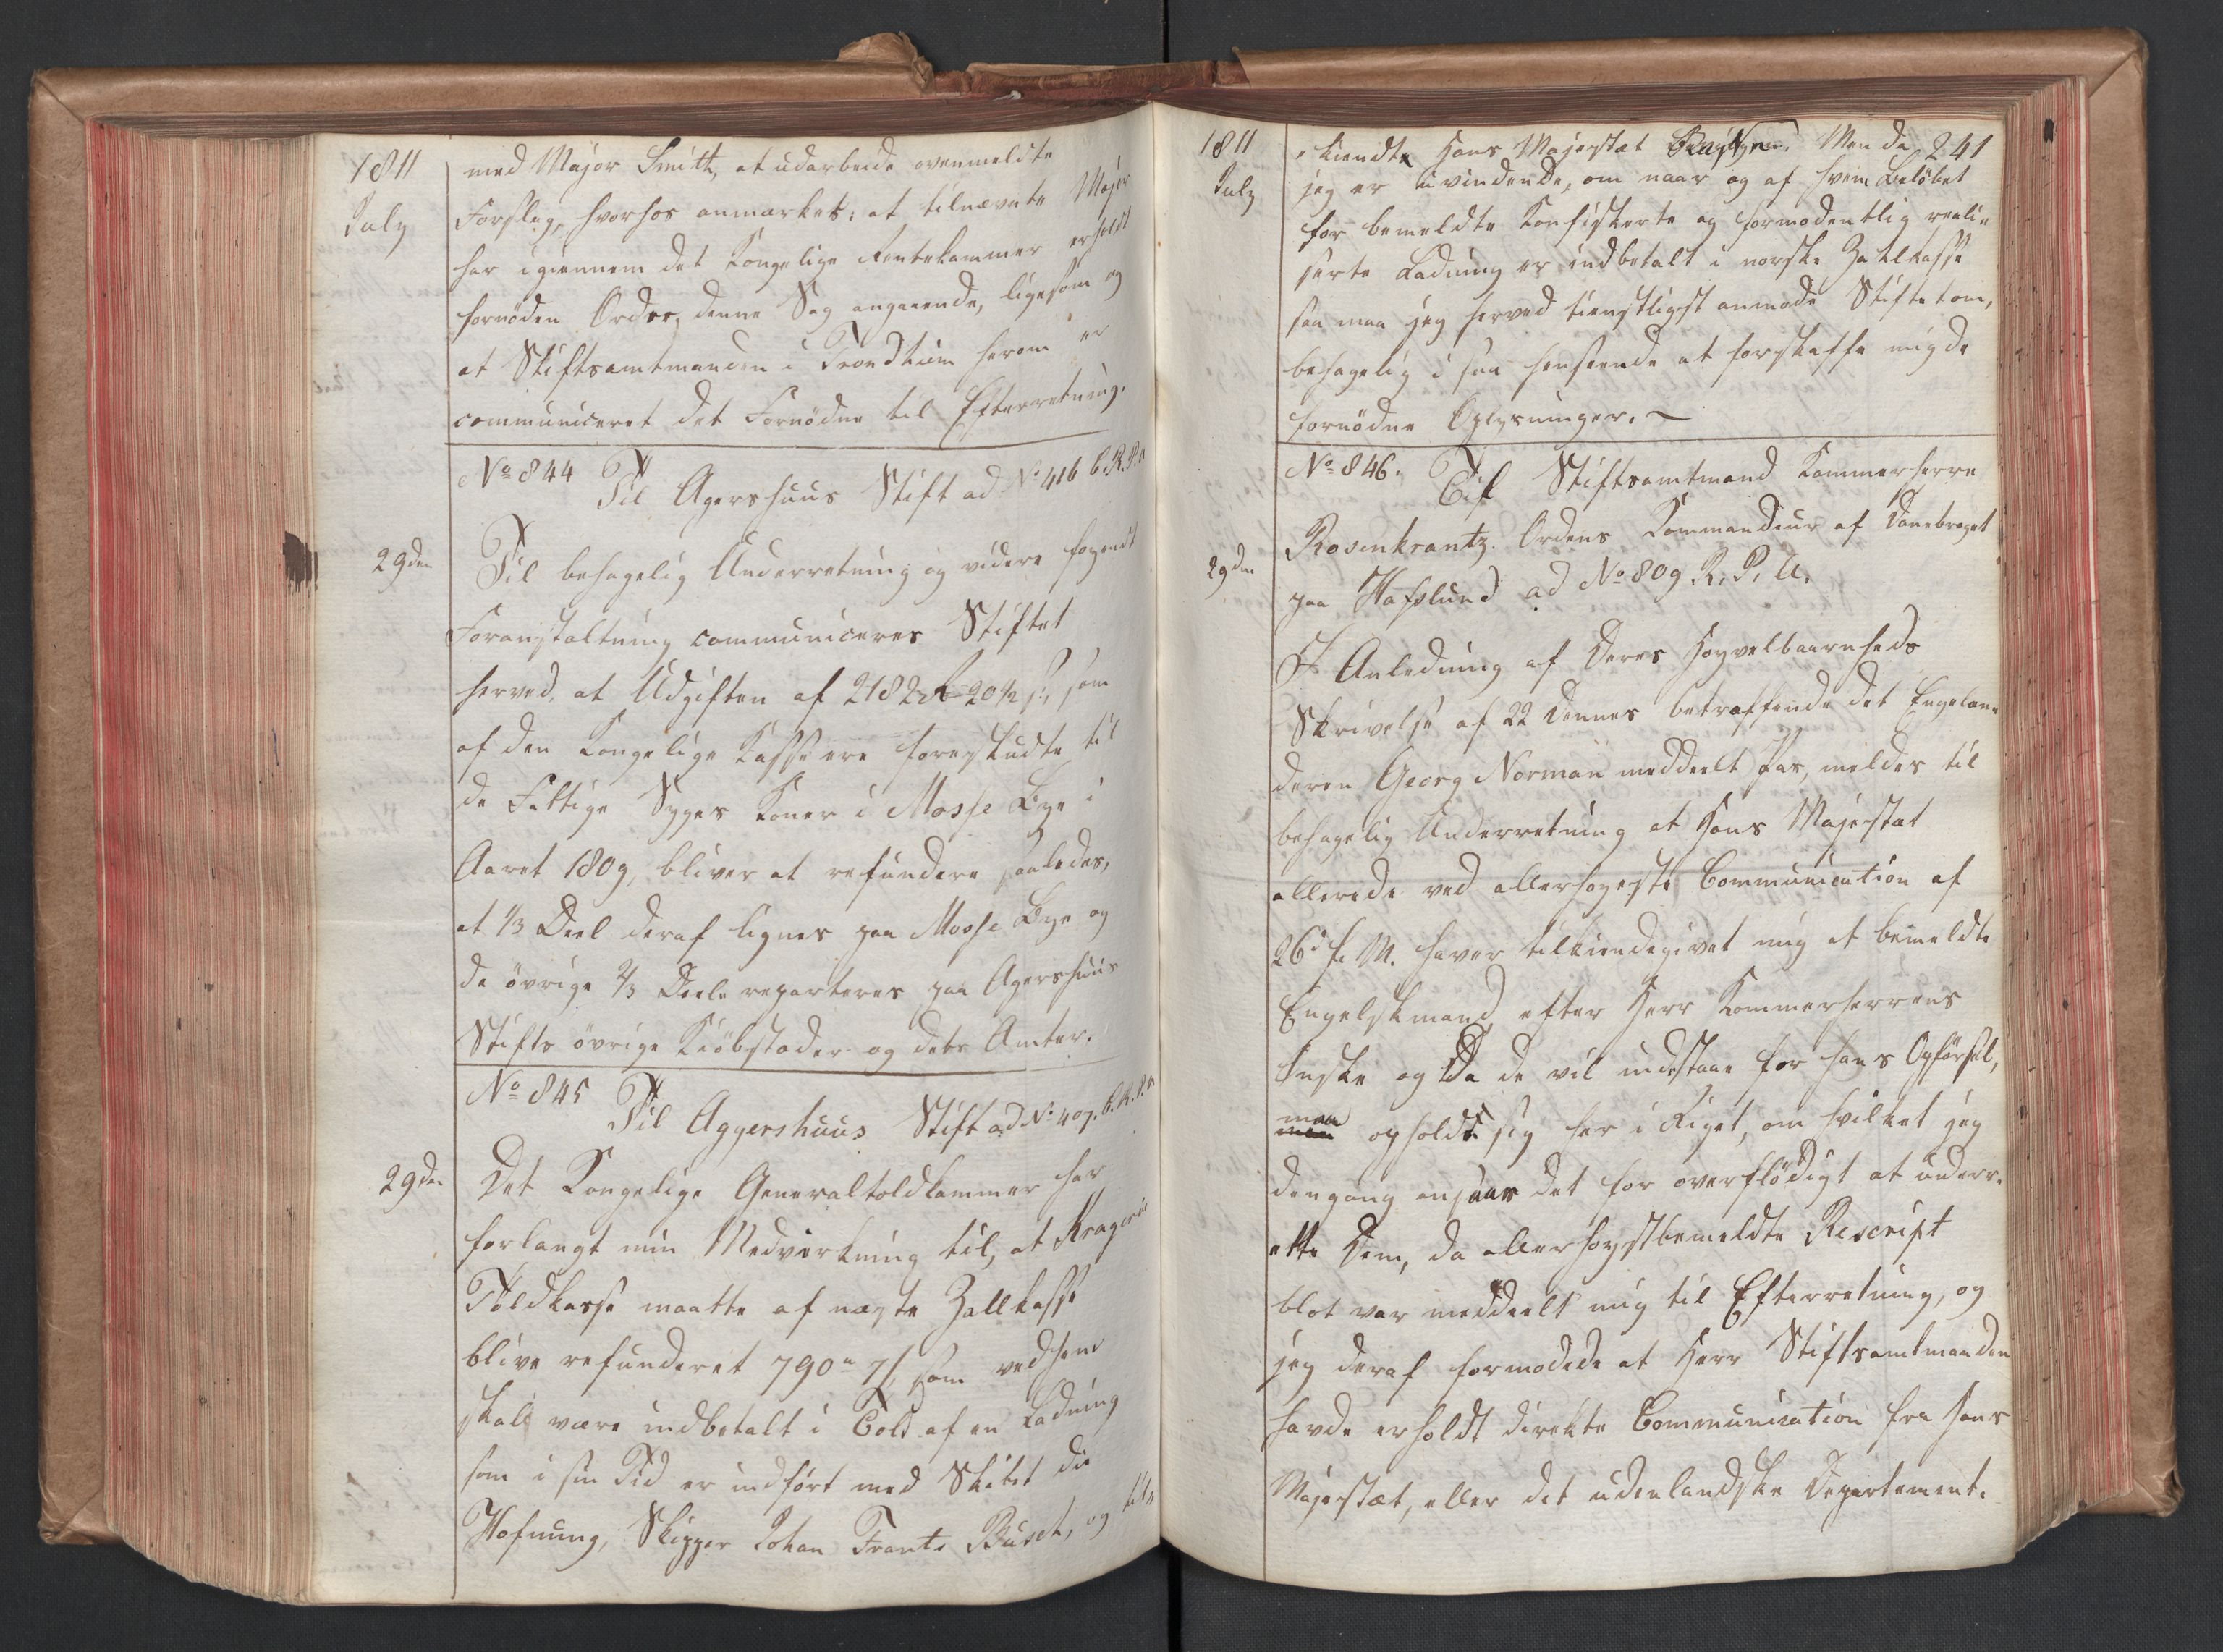 1811
July
med Major Smith, at udarbeide ovenmeldte
Forslag, hvorhos anmærkes: at tilnævnte Major
har igiennem det Kongelige Rentekammer erholdt
fornöden Ordre, denne Sag angaaende, ligesom og
at Stiftsamtmanden i Trondhiem herom er
communiceret det Fornödne til Efterretning.
No 844 Til Agershuus Stift ad No 416 C.R.P.A.
29den
Til behagelig Underretning og videre föyende
Foranstaltning communiceres Stiftet
herved, at Udgiften af 2182 Rd 20½ s, som
af den Kongelige Kasse ere foreskudte til
de Fattige Syges Koner i Mosse Bye i
Aaret 1809, bliver at refundere saaledes,
at 1/3 Deel deraf lignes paa Mosse Bye og
de övrige 2/3 Deele reparteres paa Agershuus
Stifts övrige Kiöbstæder og dets Amter.
No 845 Til Aggershuus Stift ad No 407. C.R.P.A.
29den
Det Kongelige Generaltoldkammer har
forlangt min Medvirkning til, at Krageröe
Toldkasse maatte af næste Zallkasse
blive refunderet 790 " 7 s, som
skal være indbetalt i Told af en Ladning
som i sin Tid er indfört med Skibet die
Hofnung, Skipper Johan Frantz Busch, og til-
1811
July
241
kiendt Hans Majestæt Men da
jeg er uvidende, om naar og af hvem Belöbet
for bemeldte Konfiskerte og formodentlig reali-
serte Ladning er indbetalt i norske Zahlkasse
saa maa jeg herved tienstligst anmode Stiftet om,
behagelig i saa henseende at forskaffe mig de
fornödne Oplysninger.
No 846. Til Stiftsamtmand Kammerherre
Rosenkrantz. Ordens Kommandeur af Danebroget
29den
paa Hafslund ad No 809 R. P. A.
I Anledning af Deres Höyvelbaarnheds
Skrivelse af 22 dennes betræffende det Engelæn-
deren Georg Norman meddeelt Pas, meldes til
behagelig Underretning at Hans Majestæt
allerede ved allerhöyeste Communication af
26de f. M. haver tilkiendegivet mig at bemeldte
Engelskmand efter Herr Kammerherrens
Önske og da de vil indestaae for hans Opförsel,
maa opholde sig her i Riget, om hvilket jeg
dengang ansaae det for overflödigt at underr-
ette Dem, da allerhöystbemeldte Rescript
blot var meddeelt mig til Efterretning, og
jeg deraf formodede at Herr Stiftsamtmanden
havde erholdt directe Communication fra Hans
Majestæt, eller det udenlandske Departement.